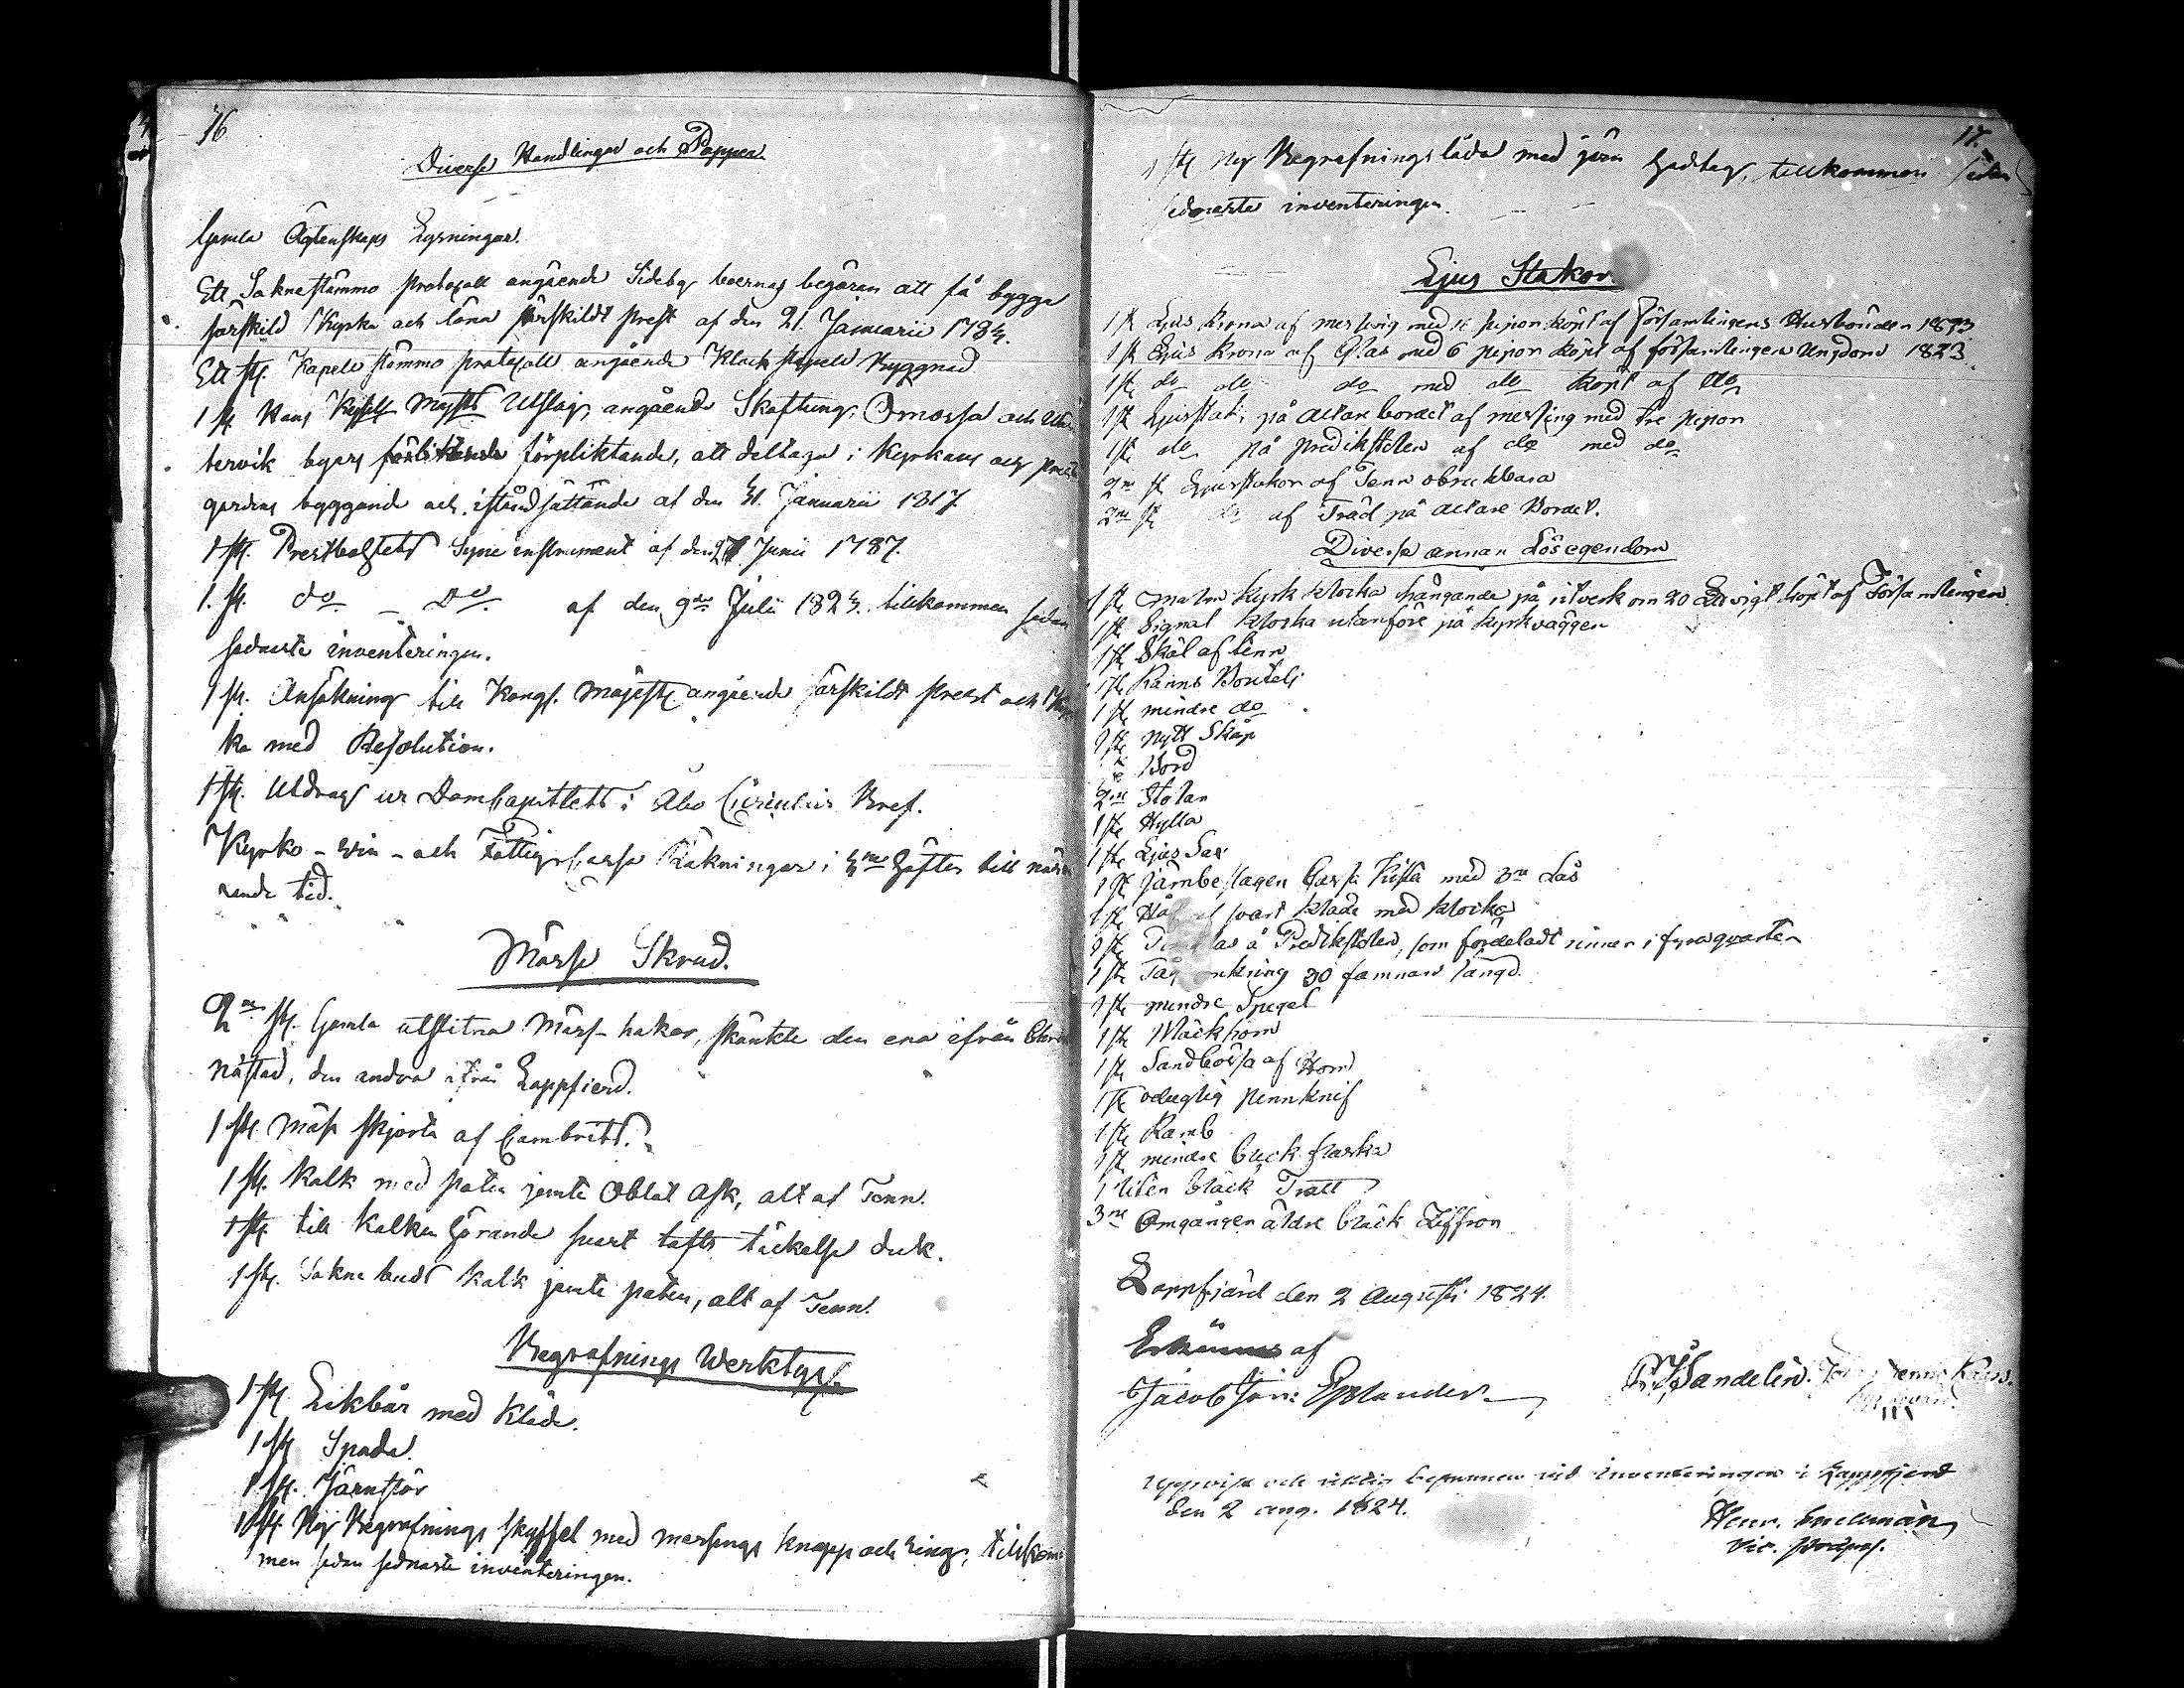 16
Diverse Handlingar och Papper
Gamla Ägtenskaps Lysningar.
Ett Soknestämmo protocoll angående Sideby boernas begäran att få bygga
särskild Kyrka och löna särskildt prest af den 21. Januarii 1784.
Ett st. Kapell stämmo protocoll angående Klockstapels Byggnad
1 st. Hans Kejserl Majsts Utslag, angående Skaftung, Ömossa och
tervik byars förpliktande, att deltaga i Kyrkans och
gardens byggande och iståndsättande af den 31. Januarii 1817.
1 st. Prestbolstets Syne instrument af den 27 Junii 1787.
1. st. do _ Do af den 9de Julii 1824. tillkommen sedan
sednaste inventeringen.
1 st. Ansökning till Kongl. Majestt. angående särskildt prest och Kyr
ka med Resolution.
1 st. Utdrag ur DomCapitlets i Åbo Circulair Bref.
Kyrko - Win - och Fattig Cassa Räkningar i 4ra Häften till närva
rande tid.
Mässe Skrud.
2ne st. Gamla utslitna Mäss-hakar, skänkte den ena ifrån
nästad, den andra ifrån Lappfierd.
1 st. Mäss skjorta af Cambrits.
1 st. Kalk med paten jemte Oblat Ask, alt af Tenn.
1 st. till Kalken hörande svart tafts täckelse duk.
1 st. Sokne buds kalk jemte paten, alt af Tenn.
Begrafnings Werktyg.
1 st. Likbår med Kläde.
1 st. Spada.
1 st. Järnstör
1 st. Ny Begrafnings skyffel med messings knapp och ring, tillkom
men sedan sednaste inventeringen.
17.
1 st. Ny Begrafnings låda med jern handtag, tillkommen sedan
sednaste inventeringen.
Ljus Stakor
1 st Ljus Krona af messing med pipor köpt af församlingens Husbönder 1823
1 st Ljus Krona af Glas med 6 pipor köpt af församlingens Ungdom 1823
1 st do do do med do köpt af do
1 st Ljusstak, på Altare bordet af messing med tre pipor
1 st do på predikstolen af do med do
2ne st Ljusstakor af Tenn obrukbara
2ne st do af Träd på Altare Bordet.
Diverse annan Lösegendom
1 st Malm kyrk klocka hängande på utverk om 20 vigt köpt af Församlingen
1 st Signal klocka utanföre på kyrkväggen
1 st Skål af tenn
1 st Kanns Boutelj
1 st mindre do
1 st nytt Skåp
1 st Bord
2ne Stolar
1 st Hylla
1 st Ljus Sax
1 st järnbeslagen Cassa Kista med 3ne Lås
1 st Håf af svart kläde med klocka
1 st Timglas å Predikstolen, som fördeladt rinner i fyra quarter
1 st 30 famnars längd.
1 st mindre Spegel
1 st Bläckhorn
1 st Sandbössa af Horn
1 st oduglig pennknif
1 st Kamb
1 st mindre bleck flaska
1 liten bläck Tratt
3ne Omgångar äldre bläck Ziffror
Lappfjärd den 2 Augusti 1824.
af
Jacob Joh: Estlander
Sandelin.
Uppvist och riktig befunnen vid inventeringen i Lappfjerd
den 2 aug. 1824.
Henr. Snellman
Vic.